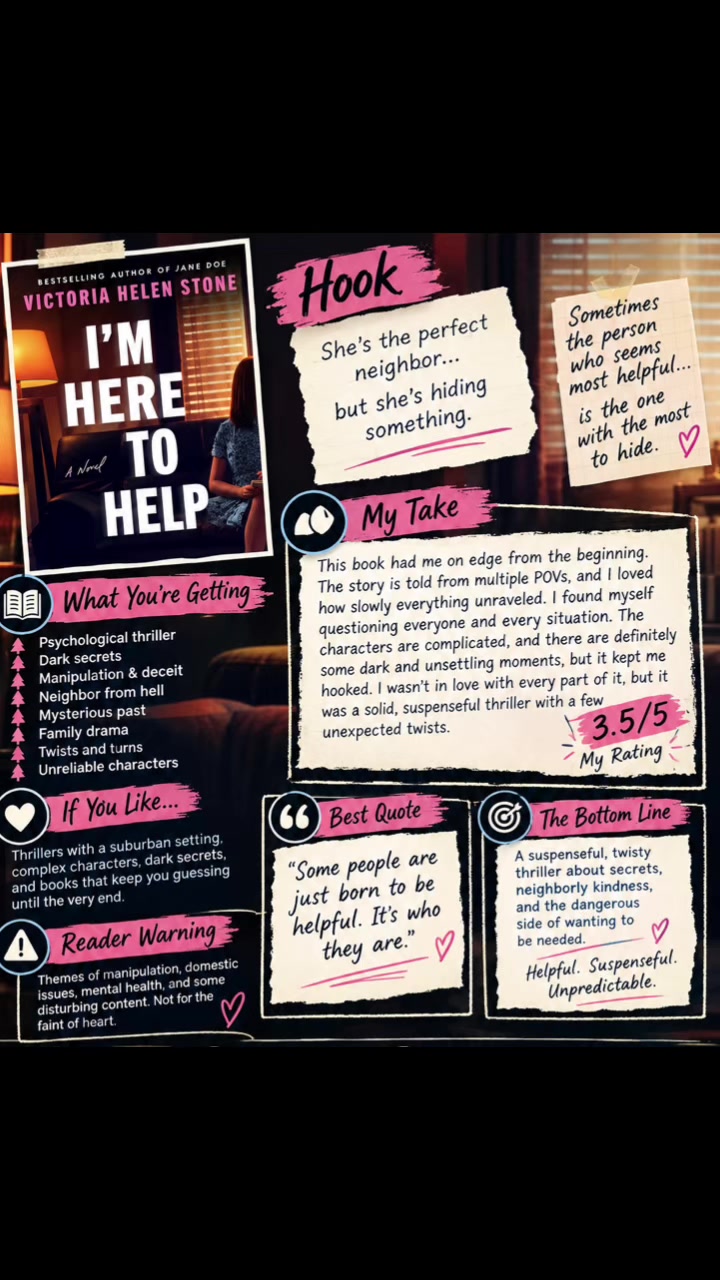 BESTSELLING AUTHOR OF JANE DOE
VICTORIA HELEN STONE
I'M
HERE
TO
HELP
A Novel
Hook
She's the perfect
neighbor...
but she's hiding
something.
Sometimes
the person
who seems
most helpful...
is the one
with the most
to hide.
My Take
This book had me on edge from the beginning.
The story is told from multiple POVs, and I loved
how slowly everything unraveled. I found myself
questioning everyone and every situation. The
characters are complicated, and there are definitely
some dark and unsettling moments, but it kept me
hooked. I wasn't in love with every part of it, but it
was a solid, suspenseful thriller with a few
unexpected twists.
3.5/5
My Rating
What You're Getting
Psychological thriller
Dark secrets
Manipulation & deceit
Neighbor from hell
Mysterious past
Family drama
Twists and turns
Unreliable characters
If You Like...
Thrillers with a suburban setting,
complex characters, dark secrets,
and books that keep you guessing
until the very end.
Reader Warning
Themes of manipulation, domestic
issues, mental health, and some
disturbing content. Not for the
faint of heart.
Best Quote
"Some people are
just born to be
helpful. It's who
they are."
The Bottom Line
A suspenseful, twisty
thriller about secrets,
neighborly kindness,
and the dangerous
side of wanting to
be needed.
Helpful. Suspenseful.
Unpredictable.